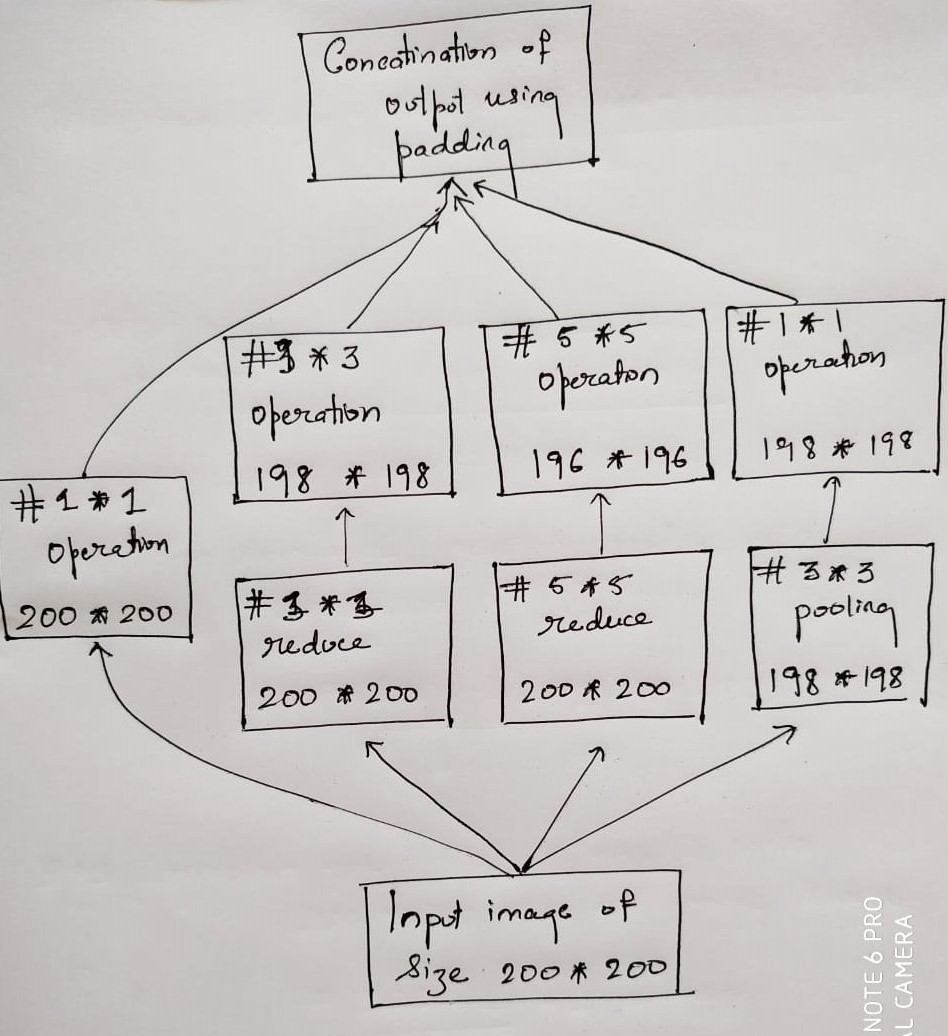 Concatination of
output using
padding
#3 * 3
operation
198 * 198
# 5 * 5
operaton
196 * 196
# 1 * 1
operation
198 * 198
# 1 * 1
operation
200 * 200
# 3 * 3
reduce
200 * 200
# 5 * 5
reduce
200 * 200
# 3 * 3
pooling
198 * 198
Input image of
size 200 * 200
NOTE 6 PRO
AL CAMERA